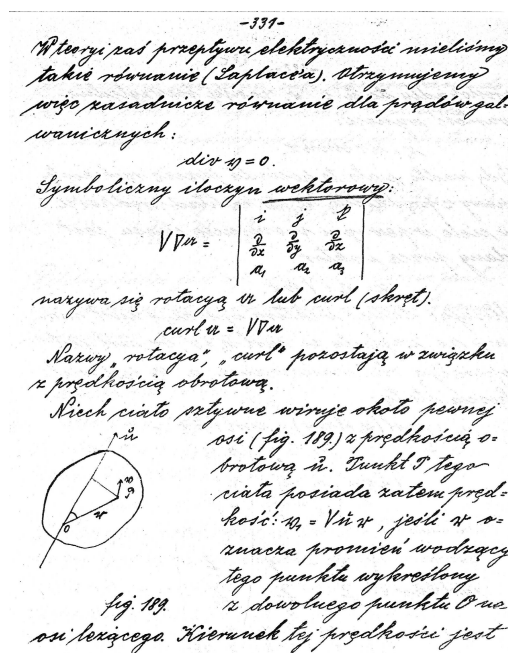 -331-
W teoryi zaś przepływu elektryczności mieliśmy
takie równanie (Laplace'a). Otrzymujemy
więc zasadnicze równanie dla prądów gal-
wanicznych:
div v = 0.
Symboliczny iloczyn wektorowy:
V∇a = | i j k |
| ∂/∂x ∂/∂y ∂/∂z |
| a₁ a₂ a₃ |
nazywa się rotacyą a lub curl (skręt).
curl a = V∇a
Nazwy „rotacya", „curl" pozostają w związku
z prędkością obrotową.
Niech ciało sztywne wiruje około pewnej
osi (fig. 189.) z prędkością o-
brotową ū. Punkt P tego
ciała posiada zatem pręd-
kość: v₁ = Vū r, jeśli r o-
znacza promień wodzący
tego punktu wykreślony
z dowolnego punktu O na
osi leżącego. Kierunek tej prędkości jest
ū
P
r
O
fig. 189.